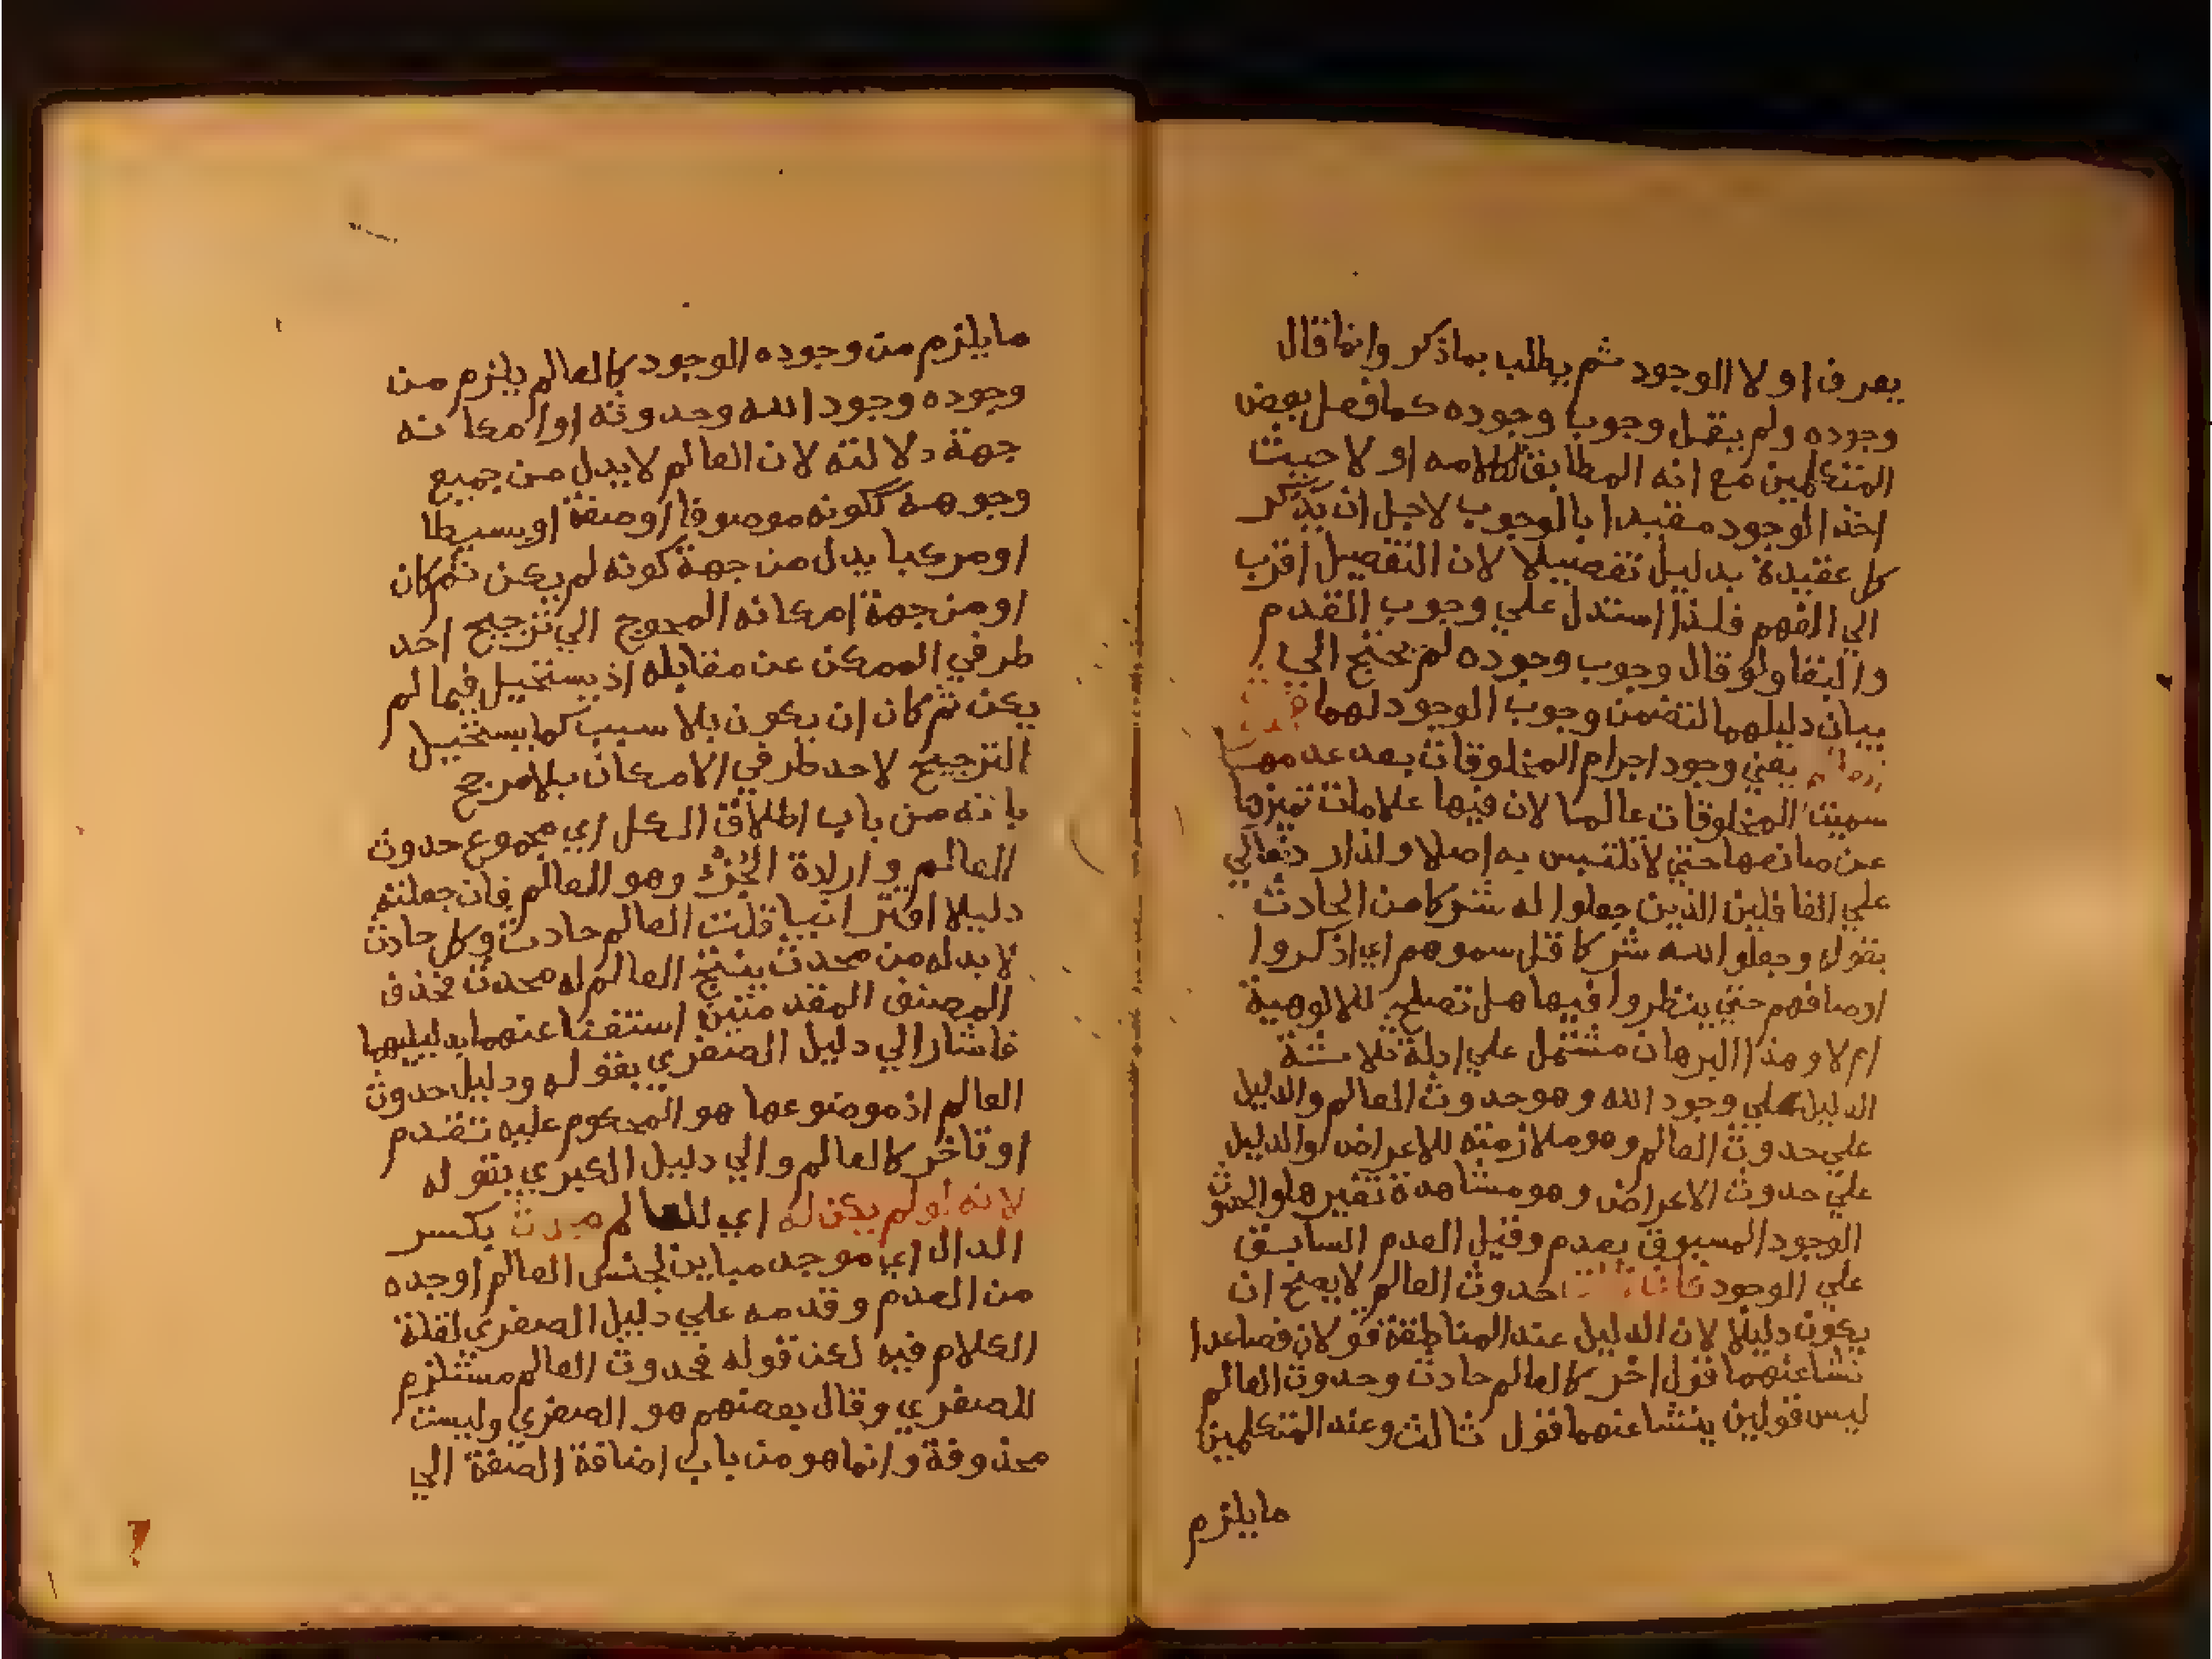 يعرف اولا الوجود ثم يطلب بماذكر وانماقال
وجوده ولم يقل وجوب وجوده كمافعل بعض
المتكلمين مع انه المطابق لكلامه اولا حيث
اخذ الوجود مقيدا بالوجوب لاجل ان يذكر
كل عقيدة بدليل تفصيلا لان التفصيل اقرب
الي الفهم فلذا استدل علي وجوب القدم
والبقا ولو قال وجوب وجوده لم يحتج الي
بيان دليلهما لتضمن وجوب الوجود لهما
يعني وجود اجرام المخلوقات بعد عدمها
سميت المخلوقات عالما لان فيها علامات تميزها
عن صانعها حتي لاتلتبس به اصلا ولذا رد تعالي
علي الغافلين الذين جعلوا له شركا من الحادث
بقوله وجعلوا لله شركا قل سموهم اي اذكروا
اوصافهم حتي ينظروا فيها هل تصلح للالوهية
ام لا وهذا البرهان مشتمل علي ادلة ثلاثة
الدليل علي وجود الله وهو حدوث العالم والدليل
علي حدوث العالم وهو ملازمته للاعراض والدليل
علي حدوث الاعراض وهو مشاهدة تغيرها والحدوث
الوجود المسبوق بعدم وقيل العدم السابق
علي الوجود فان قلت حدوث العالم لايصح ان
يكون دليلا لان الدليل عند المناطقة قولان فصاعدا
نشا عنهما قول اخر كالعالم حادث وحدوث العالم
ليس قولين ينشا عنهما قول ثالث وعند المتكلمين
مايلزم
مايلزم من وجوده الوجود كالعالم يلزم من
وجوده وجود الله وحدوثه او امكانه
جهة دلالته لان العالم لايدل من جميع
وجوهه ككونه موصوفا او صفة او بسيطا
او مركبا يدل من جهة كونه لم يكن ثم كان
او من جهة امكانه المحوج الي ترجيح احد
طرفي الممكن عن مقابله اذ يستحيل فيما لم
يكن ثم كان ان يكون بلا سبب كما يستحيل
الترجيح لاحد طرفي الامكان بلامرجح
بانه من باب اطلاق الكل اي مجموع حدوث
العالم وارادة الجزء وهو العالم فان جعلته
دليلا اقترانيا قلت العالم حادث وكل حادث
لا بد له من محدث ينتج العالم له محدث فحذف
المصنف المقدمتين استغنا عنهما بدليليهما
فاشار الي دليل الصغري بقوله ودليل حدوث
العالم اذ موضوعها هو المحكوم عليه تقدم
او تاخر كالعالم والي دليل الكبري بقوله
لانه لو لم يكن له اي للعالم محدث بكسر
الدال اي موجد مباين لجنس العالم اوجده
من العدم وقدمه علي دليل الصغري لقلة
الكلام فيه لكن قوله فحدوث العالم مستلزم
للصغري وقال بعضهم هو الصغري وليست
محذوفة وانما هو من باب اضافة الصفة الي